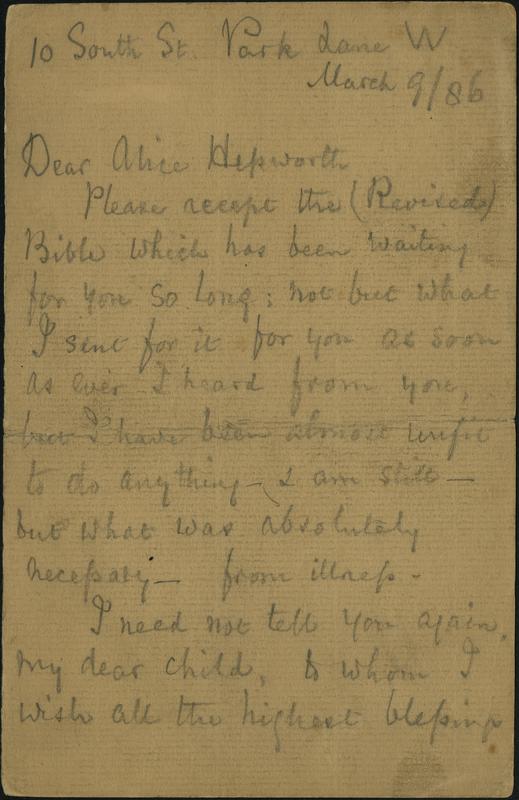 10 South St. Park Lane W
March 9/86
Dear Alice Hepworth
Please accept the (Revised)
Bible which has been waiting
for you so long; not but what
I sent for it for you as soon
as ever I heard from you,
but I have been almost unfit
to do anything – & am still –
but what was absolutely
necessary – from illness –
I need not tell you again,
my dear child, to whom I
wish all the highest blessings